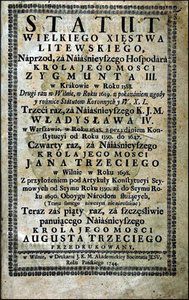 STATUT
WIELKIEGO XIĘSTWA
LITEWSKIEGO,
Naprzod, zá Náiáśnieyſzego Hoſpodárá
KROLA JEGOMOSCI
ZYGMUNTA III.
w Krákowie w Roku 1588.
Drugi raz w Wilnie, w Roku 1619. z pokazániem zgody
y rożnice Statutow Koronnych y W. X. L.
Trzeci raz, zá Náiáśnieyſzego K. J. M.
WŁADYSŁAWA IV.
w Wárſzáwie, w Roku 1648. z przydániem Kon-
ſtytucyi od Roku 1550. do 1647.
Czwarty raz, zá Náiáśnieyſzego
KROLA JEGOMOSCI
JANA TRZECIEGO
w Wilnie w Roku 1698.
Z przyłożeniem pod Artykuły Konſtytucyi Sey-
mowych od Seymu Roku 1550. áż do Seymu Ro-
ku 1690. Oboygu Narodom ſłużących,
Teraz záś piąty raz, zá ſzczęśliwie
pánuiącego Náiáśnieyſzego
KROLA JEGOMOSCI
AUGUSTA TRZECIEGO
PRZEDRUKOWANY,
w Wilnie, w Drukárni J. K. M. Akádemickiey Societatis JESU,
Roku Páńſkiego 1744.